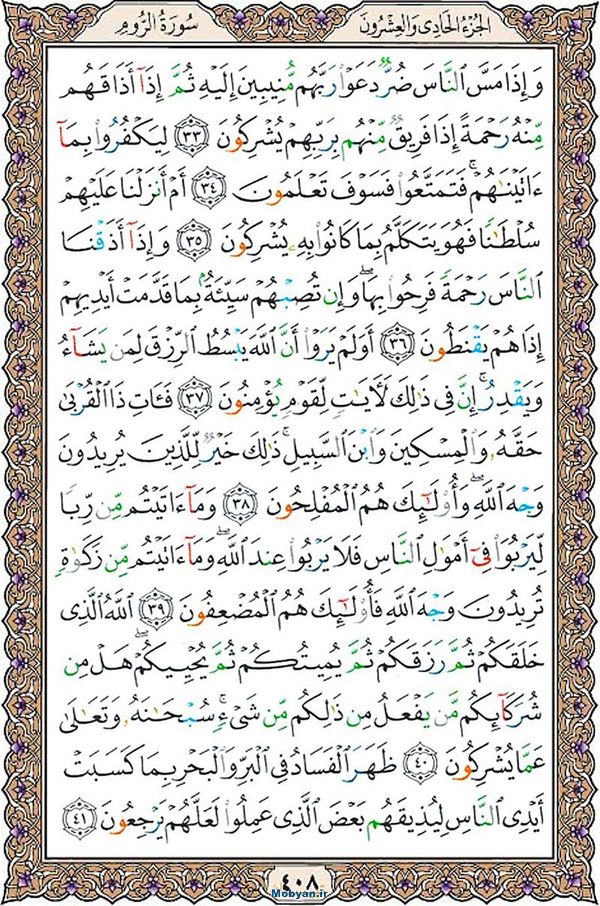 الجُزءُ الحَادِي وَالعِشرُونَ
سُورَةُ الرُّومِ
وَإِذَا مَسَّ ٱلنَّاسَ ضُرٌّ دَعَوْا۟ رَبَّهُم مُّنِيبِينَ إِلَيْهِ ثُمَّ إِذَآ أَذَاقَهُم
مِّنْهُ رَحْمَةً إِذَا فَرِيقٌ مِّنْهُم بِرَبِّهِمْ يُشْرِكُونَ ٣٣ لِيَكْفُرُوا۟ بِمَآ
ءَاتَيْنَٰهُمْ ۚ فَتَمَتَّعُوا۟ فَسَوْفَ تَعْلَمُونَ ٣٤ أَمْ أَنزَلْنَا عَلَيْهِمْ
سُلْطَٰنًا فَهُوَ يَتَكَلَّمُ بِمَا كَانُوا۟ بِهِۦ يُشْرِكُونَ ٣٥ وَإِذَآ أَذَقْنَا
ٱلنَّاسَ رَحْمَةً فَرِحُوا۟ بِهَا ۖ وَإِن تُصِبْهُمْ سَيِّئَةٌۢ بِمَا قَدَّمَتْ أَيْدِيهِمْ
إِذَا هُمْ يَقْنَطُونَ ٣٦ أَوَلَمْ يَرَوْا۟ أَنَّ ٱللَّهَ يَبْسُطُ ٱلرِّزْقَ لِمَن يَشَآءُ
وَيَقْدِرُ ۚ إِنَّ فِى ذَٰلِكَ لَءَايَٰتٍ لِّقَوْمٍ يُؤْمِنُونَ ٣٧ فَـَٔاتِ ذَا ٱلْقُرْبَىٰ
حَقَّهُۥ وَٱلْمِسْكِينَ وَٱبْنَ ٱلسَّبِيلِ ۚ ذَٰلِكَ خَيْرٌ لِّلَّذِينَ يُرِيدُونَ
وَجْهَ ٱللَّهِ ۖ وَأُو۟لَٰٓئِكَ هُمُ ٱلْمُفْلِحُونَ ٣٨ وَمَآ ءَاتَيْتُم مِّن رِّبًا
لِّيَرْبُوَا۟ فِىٓ أَمْوَٰلِ ٱلنَّاسِ فَلَا يَرْبُوا۟ عِندَ ٱللَّهِ ۖ وَمَآ ءَاتَيْتُم مِّن زَكَوٰةٍ
تُرِيدُونَ وَجْهَ ٱللَّهِ فَأُو۟لَٰٓئِكَ هُمُ ٱلْمُضْعِفُونَ ٣٩ ٱللَّهُ ٱلَّذِى
خَلَقَكُمْ ثُمَّ رَزَقَكُمْ ثُمَّ يُمِيتُكُمْ ثُمَّ يُحْيِيكُمْ ۖ هَلْ مِن
شُرَكَآئِكُم مَّن يَفْعَلُ مِن ذَٰلِكُم مِّن شَىْءٍ ۚ سُبْحَٰنَهُۥ وَتَعَٰلَىٰ
عَمَّا يُشْرِكُونَ ٤٠ ظَهَرَ ٱلْفَسَادُ فِى ٱلْبَرِّ وَٱلْبَحْرِ بِمَا كَسَبَتْ
أَيْدِى ٱلنَّاسِ لِيُذِيقَهُم بَعْضَ ٱلَّذِى عَمِلُوا۟ لَعَلَّهُمْ يَرْجِعُونَ ٤١
٤٠٨
Mobyan.ir